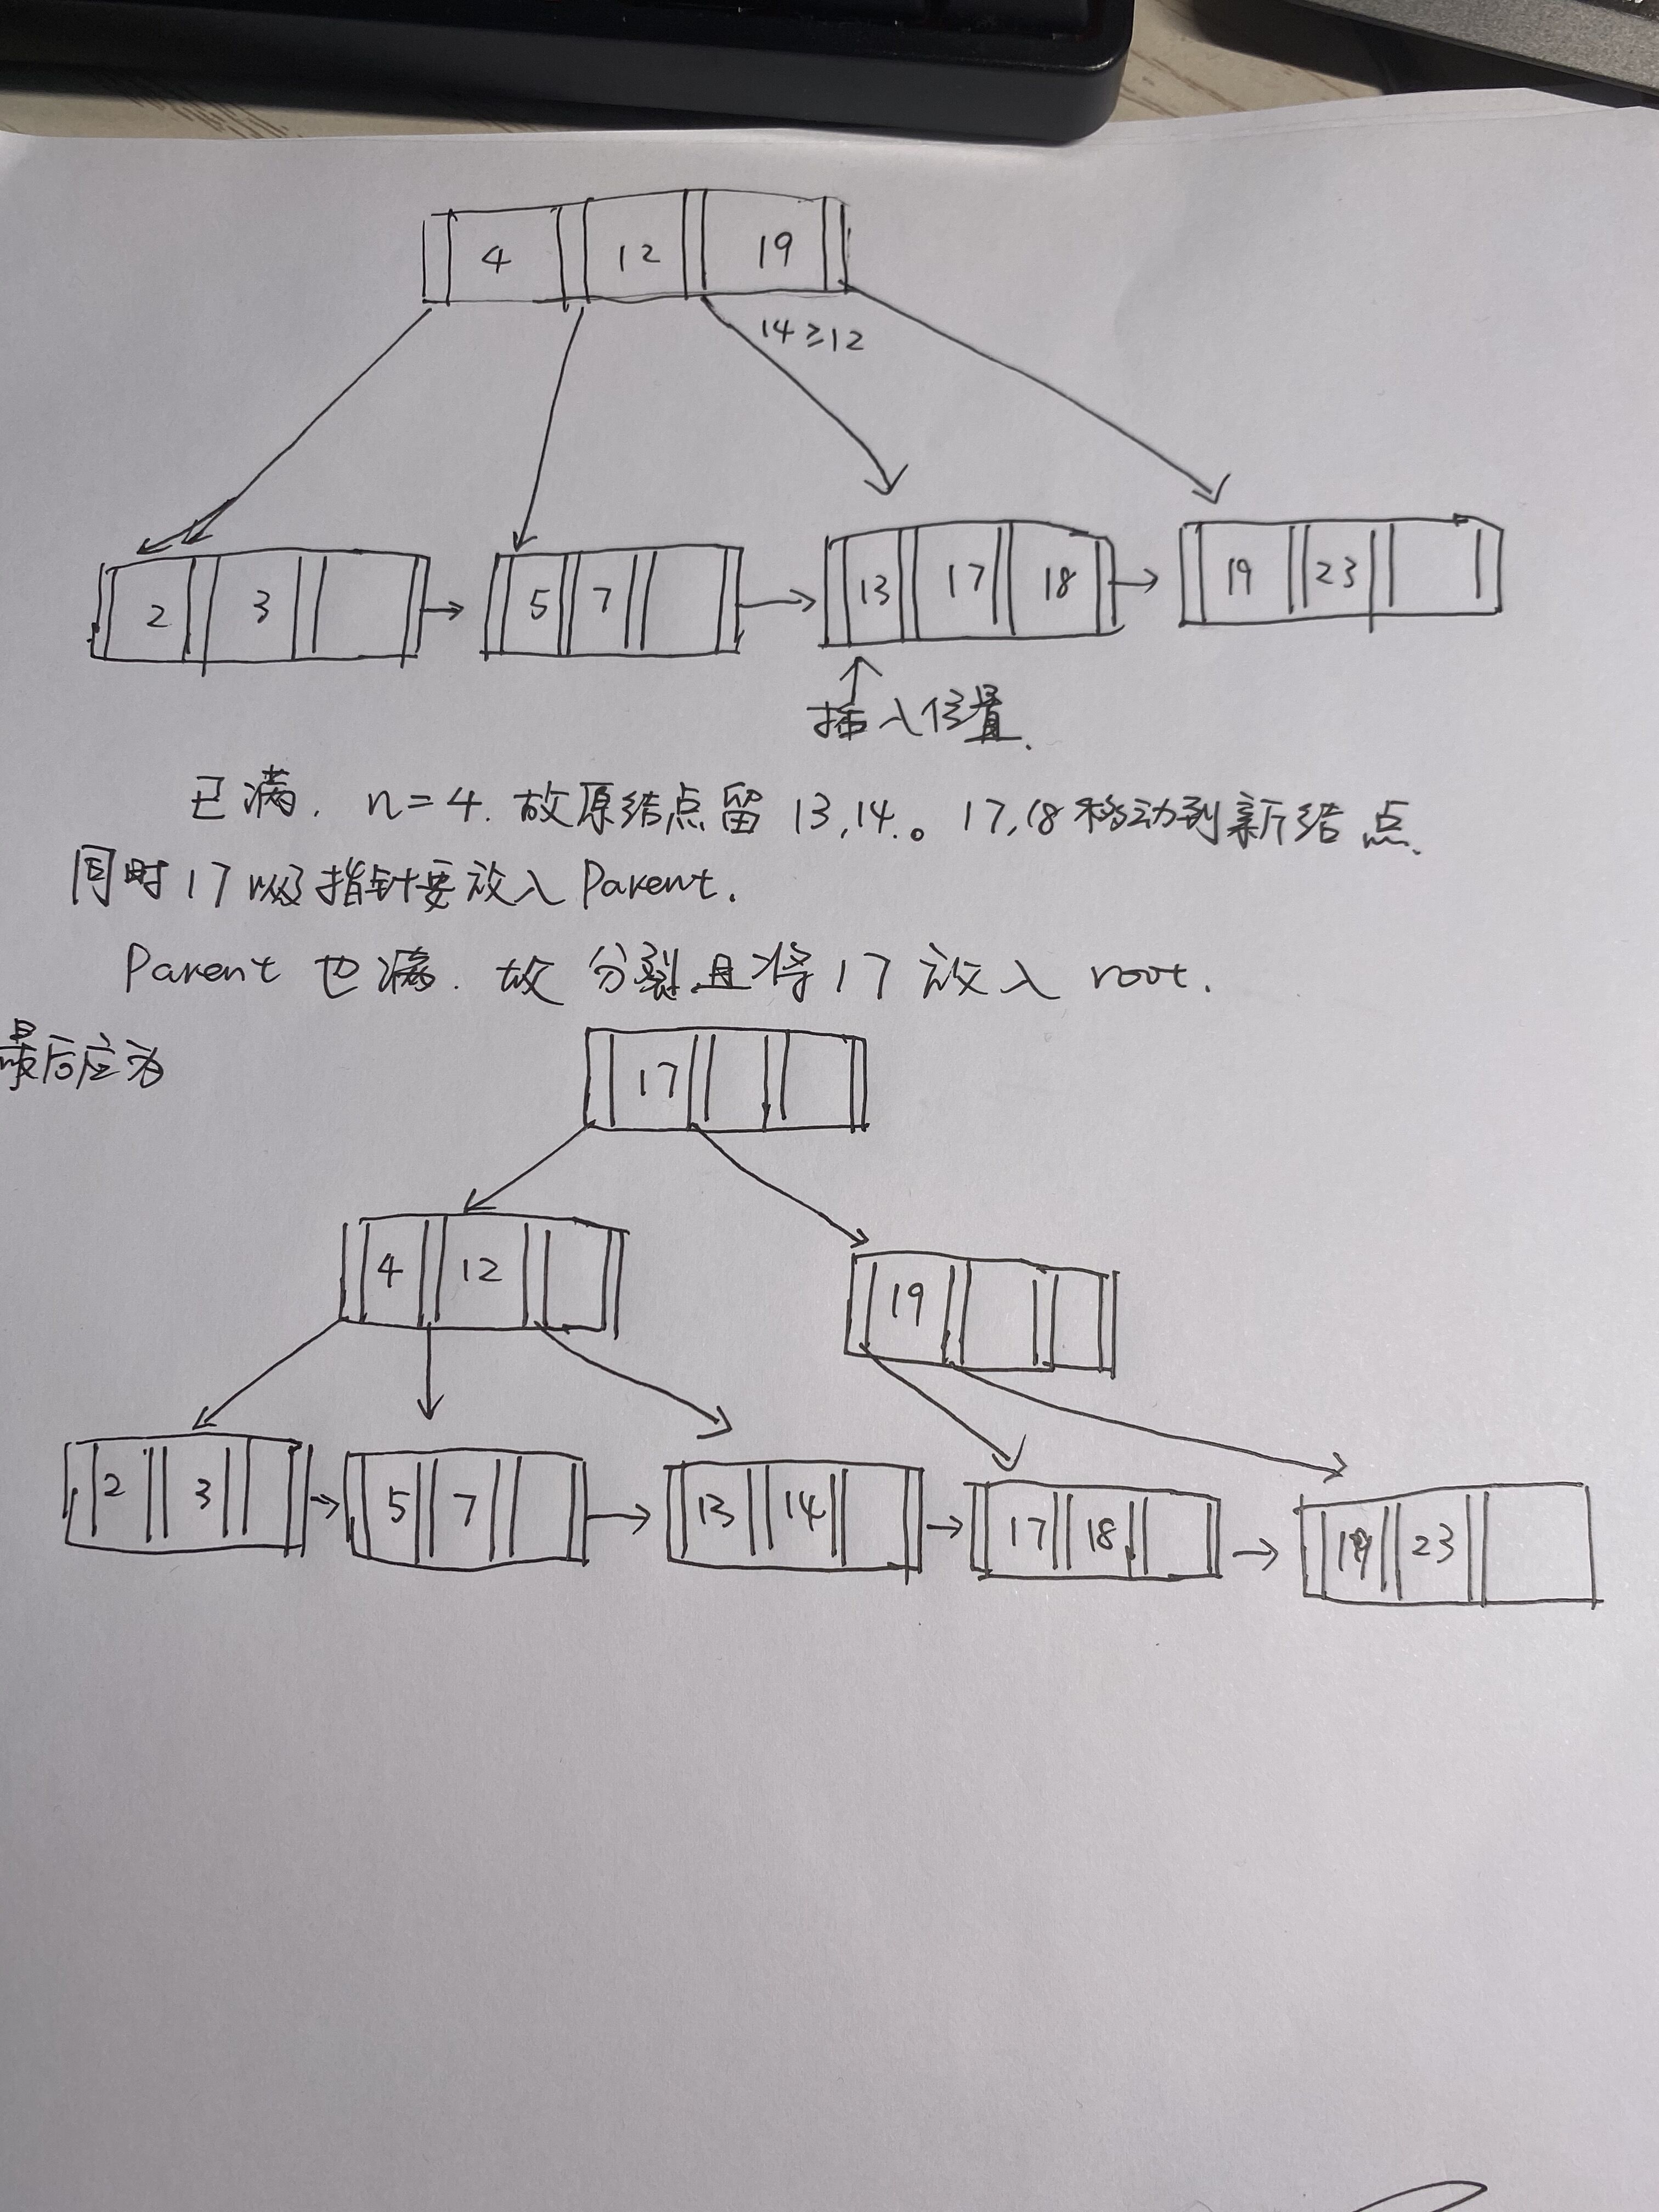 4 12 19
14≥12
2 3 5 7 13 17 18 19 23
插入位置.
已满. n=4. 故原结点留 13,14。17,18移动到新结点.
同时 17 指针要放入 Parent.
Parent 也满. 故 分裂且将17 放入 root.
最后应为
17
4 12 19
2 3 5 7 13 14 17 18 19 23